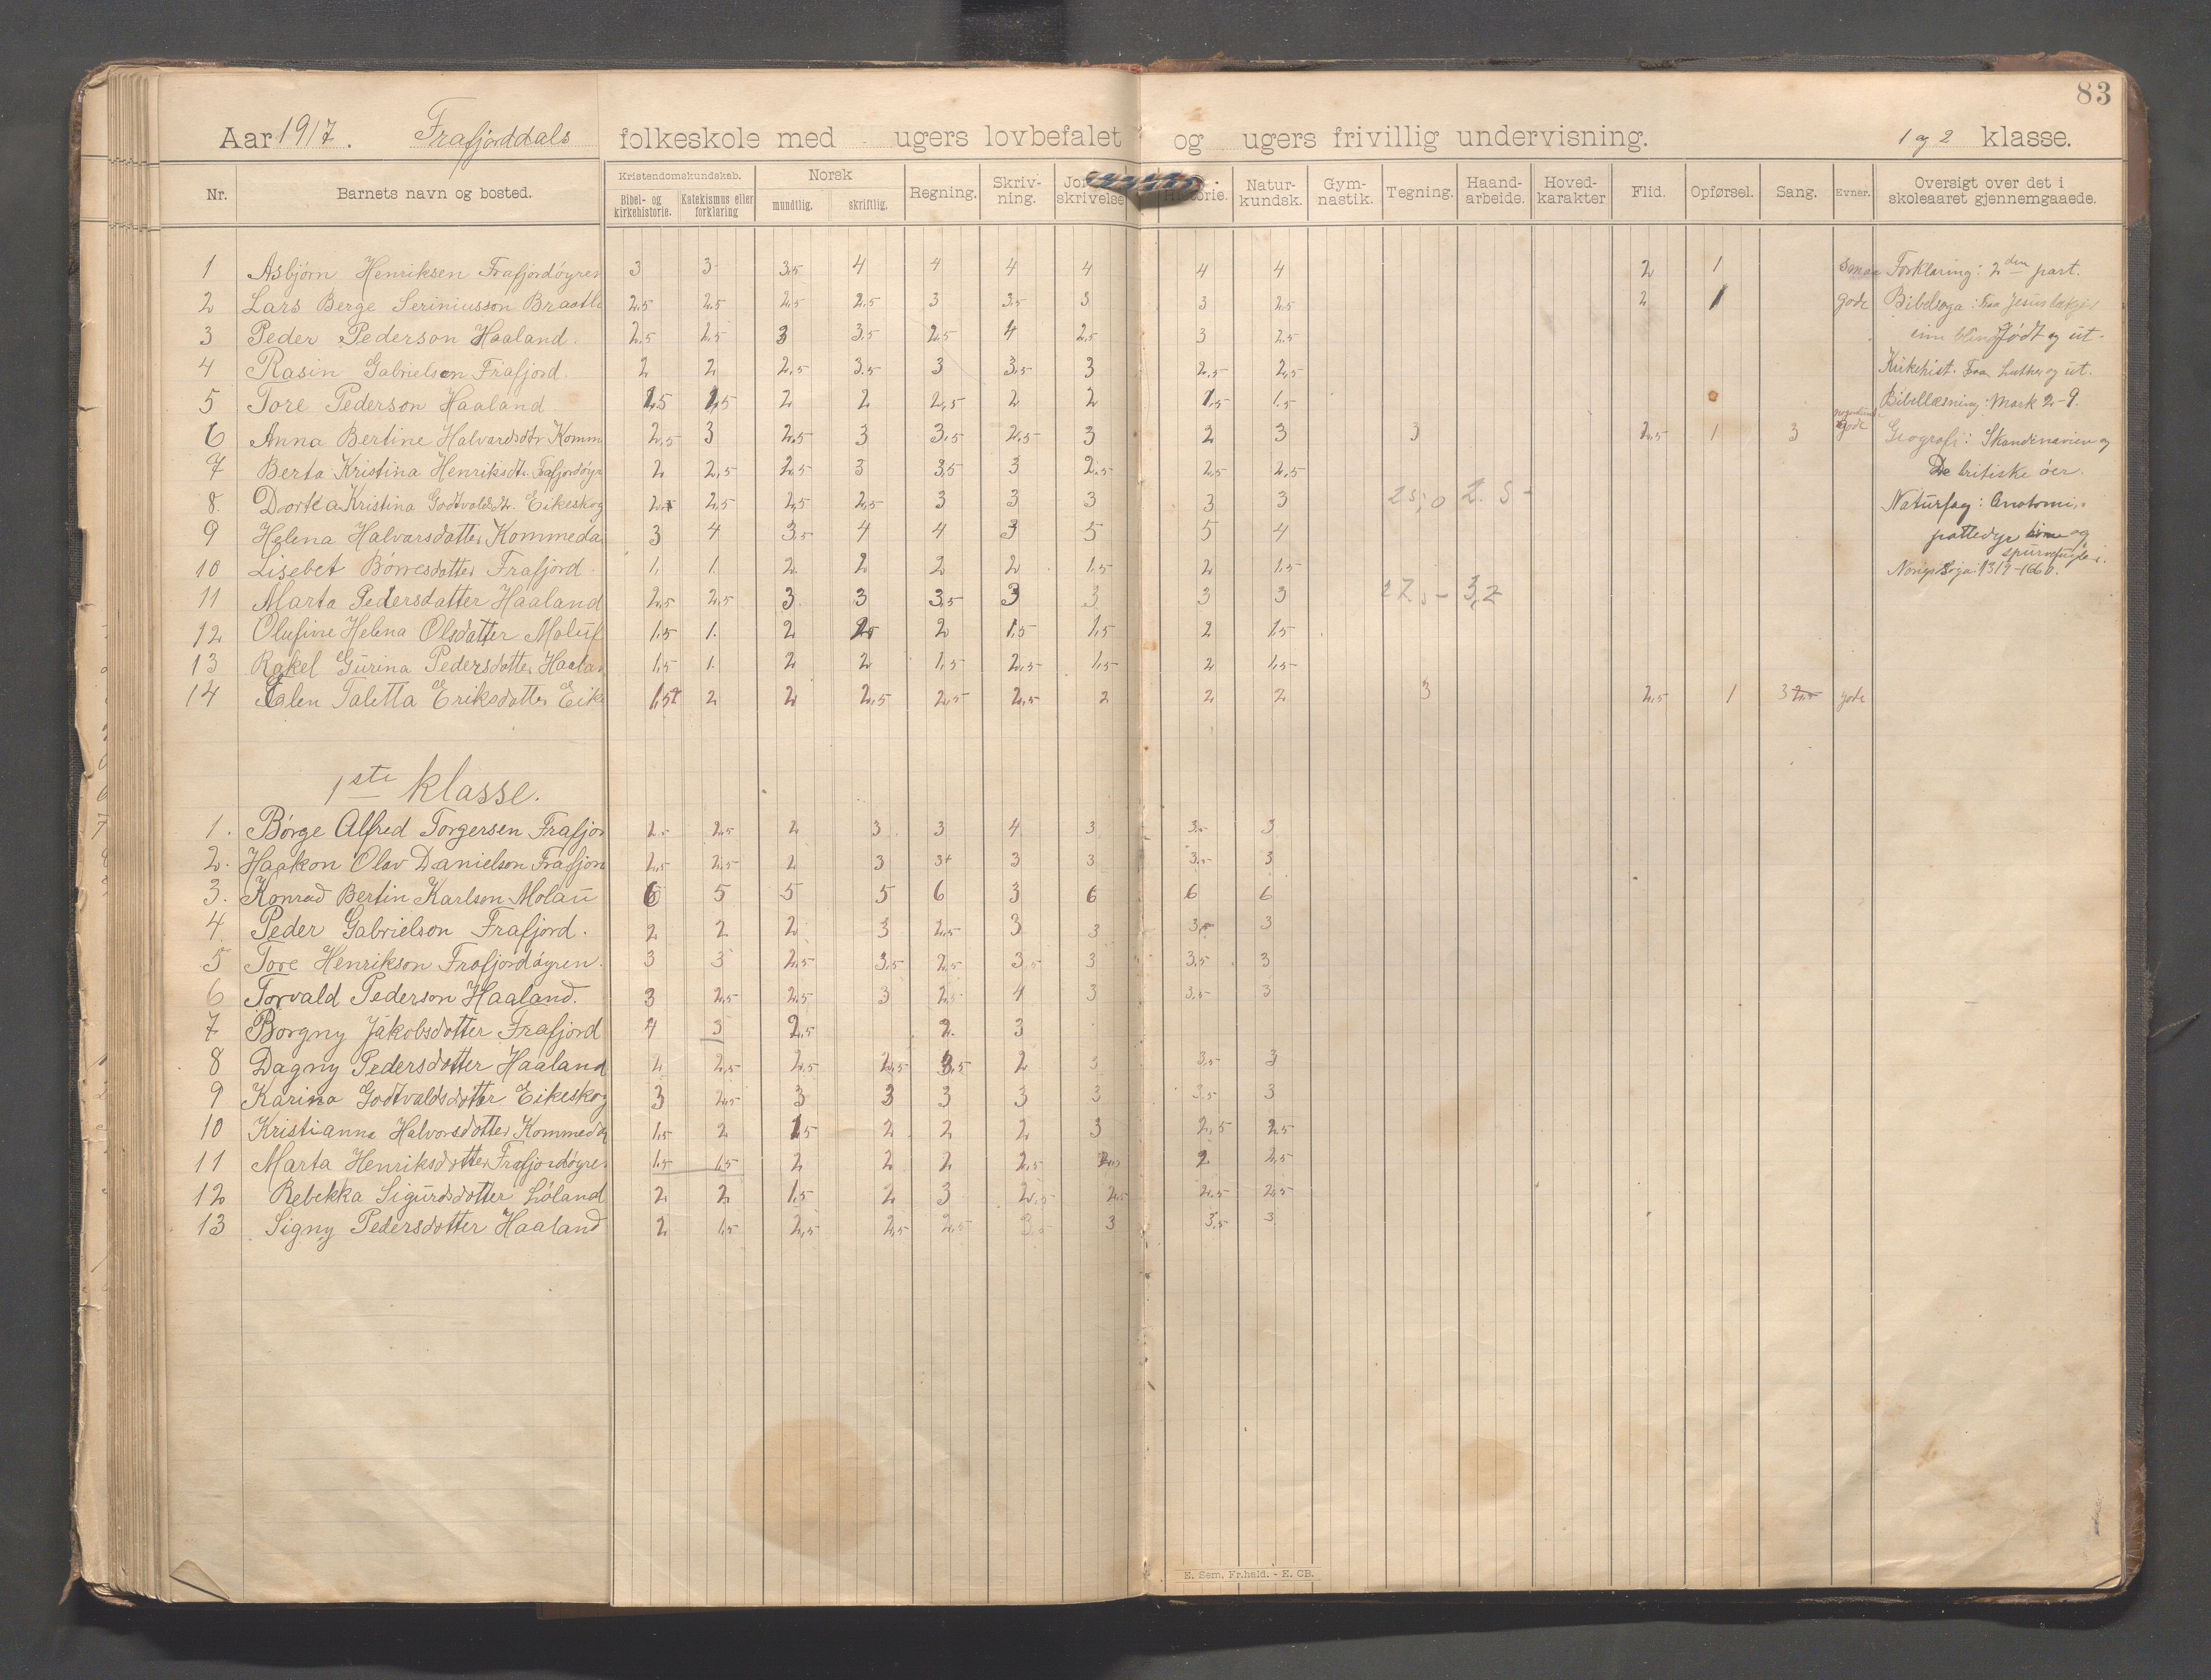 83
Aar 1917. Frafjorddals folkeskole med ugers lovbefalet og ugers frivillig undervisning. 1 og 2 klasse.
Nr. Barnets navn og bosted. Kristendomskundskab. Bibel- og kirkehistorie. Katekismus eller forklaring Norsk mundtlig. skriftlig. Regning. Skriv-ning. skrivelse Natur-kundsk. Gym-nastik. Tegning. Haand-arbeide. Hoved-karakter Flid. Opførsel. Sang. Evner. Oversigt over det i skoleaaret gjennemgaaede.
1 Asbjørn Henriksen Frafjordøyren 3 3 3,5 4 4 4 4 4 4 2 1 smaa Forklaring: 2den part.
2 Lars Berge Seriniusson 2,5 2,5 2,5 2,5 3 3,5 3 3 2,5 2 1 gode Bibelsoga: Fraa Jesus
3 Peder Pederson Haaland. 2,5 2,5 3 3,5 2,5 4 2,5 3 2,5 født og ut-
4 Rasin Gabrielson Frafjord. 2 2 2,5 3,5 3 3,5 3 2,5 2,5 Kirkehist. Fraa Luther og ut.
5 Tore Pederson Haaland 1,5 1,5 2 2 2,5 2 2 1,5 1,5 Bibellæsning: Mark 2-9.
6 Anna Bertine Halvardsdtr Komm 2,5 3 2,5 3 3,5 2,5 3 2 3 3 2,5 1 3 gode Geografi: Skandinavien og
7 Berta Kristina Henriksdtr. Frafjordøyr 2 2,5 2,5 3 3,5 3 2,5 2,5 2,5 De britiske øer.
8. Dortea Kristina Godtvaldsdtr. Eikeskog 2,5 2,5 2,5 2,5 3 3 3 3 3 Naturfag: Anatomi,
9 Helena Halvarsdatter Kommeda 3 4 3,5 4 4 3 5 5 4 pattedyr og
spurvefugle.
10 Lisebet Børresdatter Frafjord 1, 1. 2 2 2 2 1,5 2 1,5 Norigs Soga: 1319-1660.
11 Marta Pedersdatter Haaland 2,5 2,5 3 3 3,5 3 3 3 3 3,2
12 Olufine Helena Olsdatter Molauf 1,5 1. 2 2,5 2 1,5 1,5 2 1,5
13 Rakel Gurina Pedersdatter Haalan 1,5 1. 2 2 1,5 2,5 1,5 2 1,5
14 Talen Taletta Eriksdatter Eike 1,5 2 2 2,5 2,5 2,5 2 2 2 3 2,5 1 3 gode
1ste klasse.
1. Børge Alfred Torgersen Frafjor 2,5 2,5 2 3 3 4 3 3,5 3
2. Haakon Olav Danielson Frafjor 2,5 2,5 2 3 3+ 3 3 3,5 3
3. Konrad Bertin Karlson Molau 6 5 5 5 6 3 6 6 6
4. Peder Gabrielson Frafjord. 2 2 2 3 2,5 3 3 3,5 3
5 Tore Henrikson Frafjordøyren. 3 3 2,5 3,5 2,5 3,5 3 3,5 3
6 Torvald Pederson Haaland. 3 2,5 2,5 3 2,5 4 3 3,5 3
7 Borgny Jakobsdotter Frafjord 4 3 2,5 2. 3
8 Dagny Pedersdotter Haaland 2 2,5 2,5 2,5 3,5 2 3 3,5 3
9 Karina Godtvaldsdotter Eikeskog 3 2,5 3 3 3 3 3 3,5 3
10 Kristianna Halvorsdotter Kommeda 1,5 2 1,5 2 2 2 3 2,5 2,5
11 Marta Henriksdotter Frafjordøyre. 1,5 1,5 2 2 2 2,5 2,5 2 2,5
12 Rebekka Sigurdsdotter Løland 2 2 1,5 2 3 2,5 2,5 2,5 2,5
13 Signy Pedersdotter Haaland 2 1,5 2,5 2,5 2,5 3,5 3 3,5 3
E. Sem, Fr.hald. - E. CB.